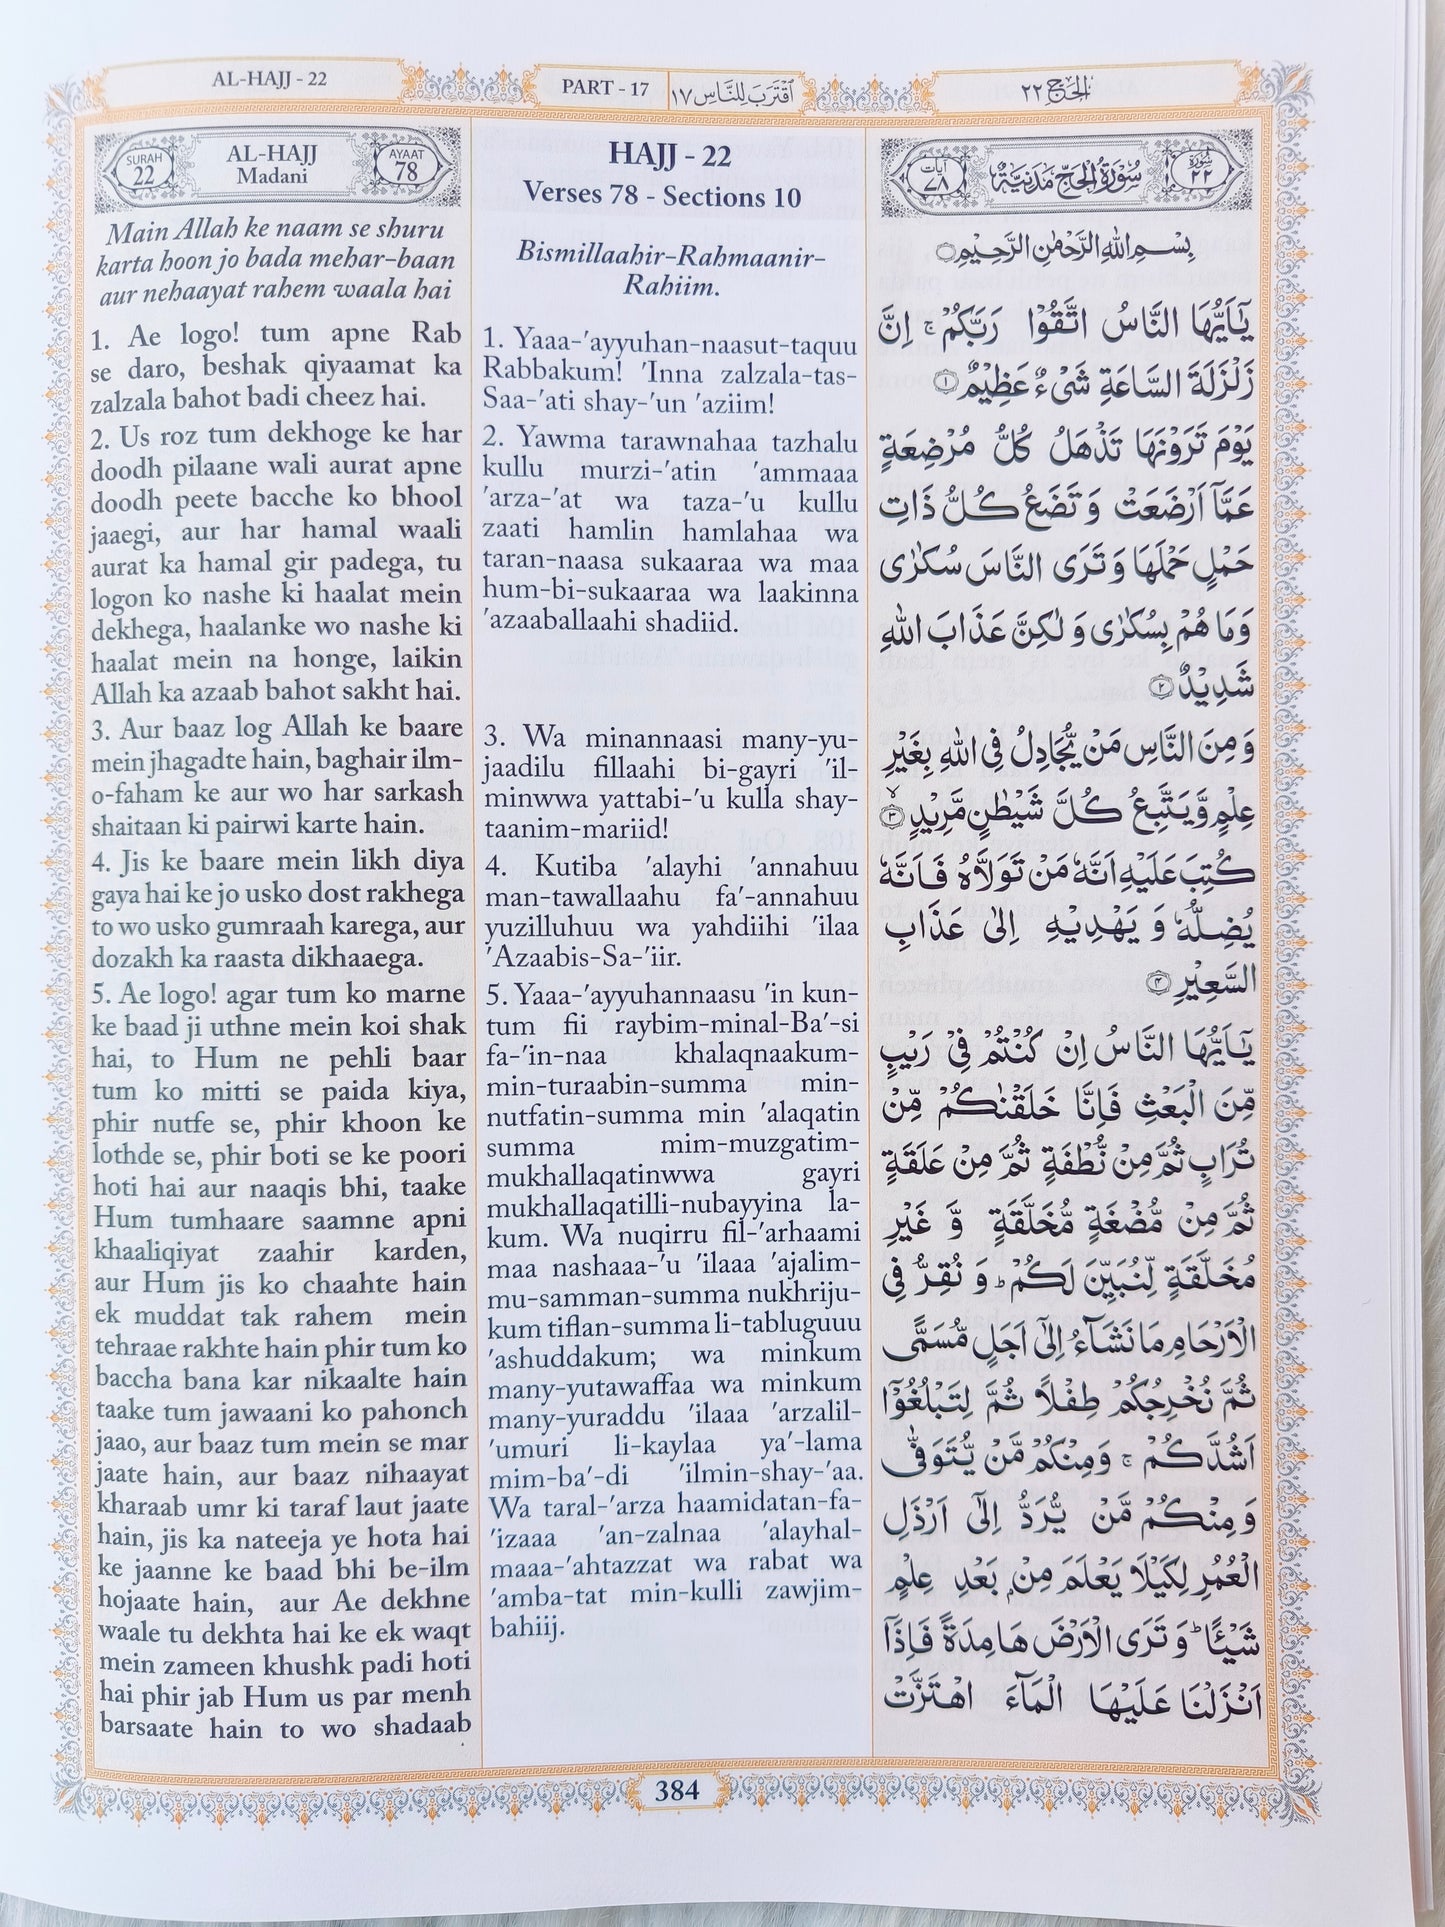 AL-HAJJ - 22
PART - 17
اقْتَرَبَ لِلنَّاسِ ١٧
الْحَجّ ٢٢
SURAH
22
AL-HAJJ
Madani
AYAAT
78
Main Allah ke naam se shuru
karta hoon jo bada mehar-baan
aur nehaayat rahem waala hai
1. Ae logo! tum apne Rab
se daro, beshak qiyaamat ka
zalzala bahot badi cheez hai.
2. Us roz tum dekhoge ke har
doodh pilaane wali aurat apne
doodh peete bacche ko bhool
jaaegi, aur har hamal waali
aurat ka hamal gir padega, tu
logon ko nashe ki haalat mein
dekhega, haalanke wo nashe ki
haalat mein na honge, laikin
Allah ka azaab bahot sakht hai.
3. Aur baaz log Allah ke baare
mein jhagadte hain, baghair ilm-
o-faham ke aur wo har sarkash
shaitaan ki pairwi karte hain.
4. Jis ke baare mein likh diya
gaya hai ke jo usko dost rakhega
to wo usko gumraah karega, aur
dozakh ka raasta dikhaaega.
5. Ae logo! agar tum ko marne
ke baad ji uthne mein koi shak
hai, to Hum ne pehli baar
tum ko mitti se paida kiya,
phir nutfe se, phir khoon ke
lothde se, phir boti se ke poori
hoti hai aur naaqis bhi, taake
Hum tumhaare saamne apni
khaaliqiyat zaahir karden,
aur Hum jis ko chaahte hain
ek muddat tak rahem mein
tehraae rakhte hain phir tum ko
baccha bana kar nikaalte hain
taake tum jawaani ko pahonch
jaao, aur baaz tum mein se mar
jaate hain, aur baaz nihaayat
kharaab umr ki taraf laut jaate
hain, jis ka nateeja ye hota hai
ke jaanne ke baad bhi be-ilm
hojaate hain, aur Ae dekhne
waale tu dekhta hai ke ek waqt
mein zameen khushk padi hoti
hai phir jab Hum us par menh
barsaate hain to wo shadaab
HAJJ - 22
Verses 78 - Sections 10
Bismillaahir-Rahmaanir-
Rahiim.
1. Yaaa-'ayyuhan-naasut-taquu
Rabbakum! 'Inna zalzala-tas-
Saa-'ati shay-'un 'aziim!
2. Yawma tarawnahaa tazhalu
kullu murzi-'atin 'ammaaa
'arza-'at wa taza-'u kullu
zaati hamlin hamlahaa wa
taran-naasa sukaaraa wa maa
hum-bi-sukaaraa wa laakinna
'azaaballaahi shadiid.
3. Wa minannaasi many-yu-
jaadilu fillaahi bi-gayri 'il-
minwwa yattabi-'u kulla shay-
taanim-mariid!
4. Kutiba 'alayhi 'annahuu
man-tawallaahu fa'-annahuu
yuzilluhuu wa yahdiihi 'ilaa
'Azaabis-Sa-'iir.
5. Yaaa-'ayyuhannaasu 'in kun-
tum fii raybim-minal-Ba'-si
fa-'in-naa khalaqnaakum-
min-turaabin-summa min-
nutfatin-summa min 'alaqatin
summa mim-muzgatim-
mukhallaqatinwwa gayri
mukhallaqatilli-nubayyina la-
kum. Wa nuqirru fil-'arhaami
maa nashaaa-'u 'ilaaa 'ajalim-
mu-samman-summa nukhriju-
kum tiflan-summa li-tabluguuu
'ashuddakum; wa minkum
many-yutawaffaa wa minkum
many-yuraddu 'ilaaa 'arzalil-
'umuri li-kaylaa ya'-lama
mim-ba'-di 'ilmin-shay-'aa.
Wa taral-'arza haamidatan-fa-
'izaaa 'an-zalnaa 'alayhal-
maaa-'ahtazzat wa rabat wa
'amba-tat min-kulli zawjim-
bahiij.
سُوْرَةُ الْحَجِّ مَدَنِيَّةٌ
سُوْرَة ٢٢
اٰيَات ٧٨
بِسْمِ اللهِ الرَّحْمٰنِ الرَّحِيْمِ
يٰۤاَيُّهَا النَّاسُ اتَّقُوْا رَبَّكُمْ ۚ اِنَّ
زَلْزَلَةَ السَّاعَةِ شَیْءٌ عَظِيْمٌ ١
يَوْمَ تَرَوْنَهَا تَذْهَلُ كُلُّ مُرْضِعَةٍ
عَمَّاۤ اَرْضَعَتْ وَ تَضَعُ كُلُّ ذَاتِ
حَمْلٍ حَمْلَهَا وَ تَرَى النَّاسَ سُكٰرٰى
وَمَا هُمْ بِسُكٰرٰى وَ لٰكِنَّ عَذَابَ اللهِ
شَدِيْدٌ ٢
وَ مِنَ النَّاسِ مَنْ يُّجَادِلُ فِى اللهِ بِغَيْرِ
عِلْمٍ وَّ يَتَّبِعُ كُلَّ شَيْطٰنٍ مَّرِيْدٍ ٣
كُتِبَ عَلَيْهِ اَنَّهٗ مَنْ تَوَلَّاهُ فَاَنَّهٗ
يُضِلُّهٗ وَ يَهْدِيْهِ اِلٰى عَذَابِ
السَّعِيْرِ ٤
يٰۤاَيُّهَا النَّاسُ اِنْ كُنْتُمْ فِیْ رَيْبٍ
مِّنَ الْبَعْثِ فَاِنَّا خَلَقْنٰكُمْ مِّنْ
تُرَابٍ ثُمَّ مِنْ نُّطْفَةٍ ثُمَّ مِنْ عَلَقَةٍ
ثُمَّ مِنْ مُّضْغَةٍ مُّخَلَّقَةٍ وَّ غَيْرِ
مُخَلَّقَةٍ لِّنُبَيِّنَ لَكُمْ ؕ وَ نُقِرُّ فِى
الْاَرْحَامِ مَا نَشَآءُ اِلٰۤى اَجَلٍ مُّسَمًّى
ثُمَّ نُخْرِجُكُمْ طِفْلًا ثُمَّ لِتَبْلُغُوْۤا
اَشُدَّكُمْ ۚ وَمِنْكُمْ مَّنْ يُّتَوَفّٰى
وَ مِنْكُمْ مَّنْ يُّرَدُّ اِلٰۤى اَرْذَلِ
الْعُمُرِ لِكَيْلَا يَعْلَمَ مِنْۢ بَعْدِ عِلْمٍ
شَيْـًٔا ؕ وَ تَرَى الْاَرْضَ هَامِدَةً فَاِذَاۤ
اَنْزَلْنَا عَلَيْهَا الْمَآءَ اهْتَزَّتْ
384